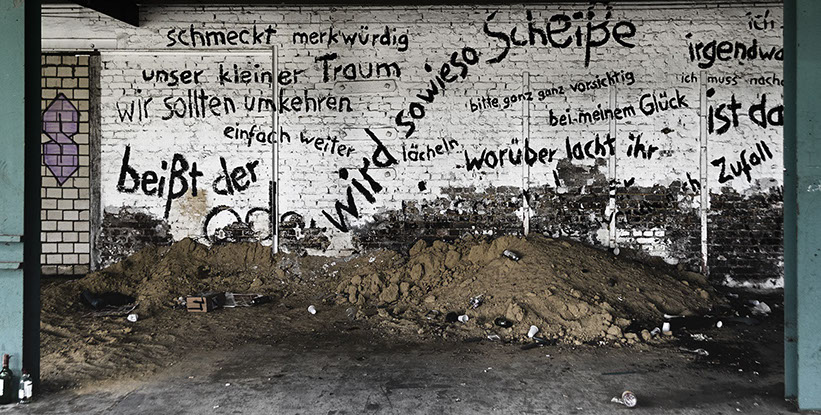 schmeckt merkwürdig
unser kleiner Traum
wir sollten umkehren
einfach weiter
beißt der
wird sowieso Scheiße
lächeln
bitte ganz ganz vorsichtig
bei meinem Glück
worüber lacht ihr
ich
ich muss
ist
Zufall